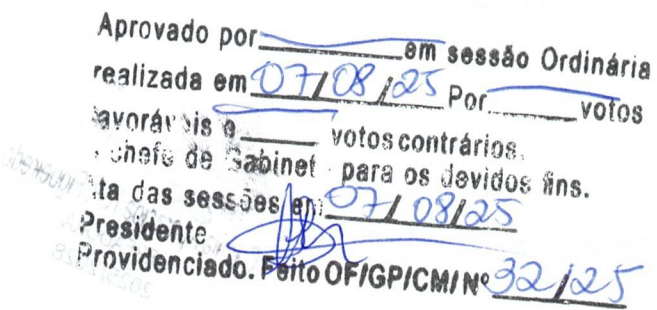 Aprovado por em sessão Ordinária
realizada em 07/08/25 Por votos
favoráveis e votos contrários.
chefe de Gabinet para os devidos fins.
ta das sessões em 07/08/25
Presidente
Providenciado. Feito OF/GP/CM/Nº 32/25